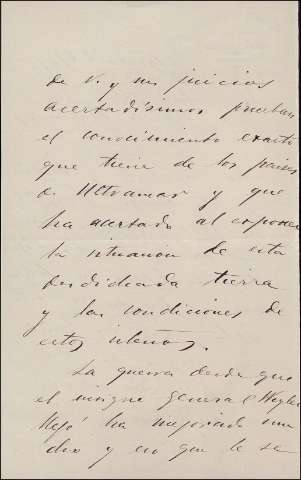 de V. y sus juicios
acertadísimos prueban
el conocimiento exacto
que tiene de los paises
de Ultramar y que
ha acertado al exponer
la situacion de esta
desdichada tierra
y las condiciones de
estos isleños.
La guerra desde que
el insigne general Weyler
llegó ha mejorado mu
cho y en que le se